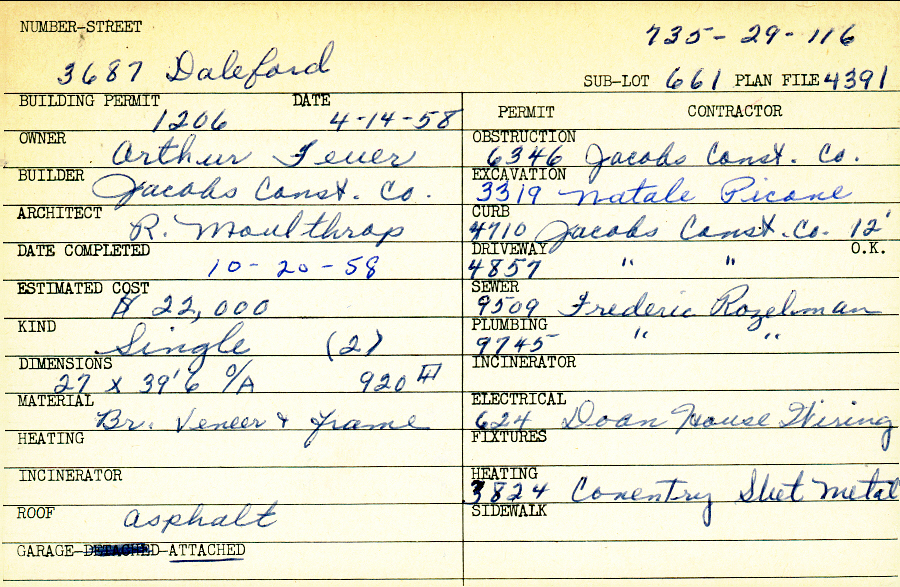 NUMBER-STREET
735-29-116
3687 Daleford
SUB-LOT 661 PLAN FILE 4391
BUILDING PERMIT DATE
1206 4-14-58
PERMIT CONTRACTOR
OWNER
Arthur Feuer
OBSTRUCTION
6346 Jacobs Const. Co.
BUILDER
Jacobs Const. Co.
EXCAVATION
3319 Natale Picone
ARCHITECT
R. Moulthrop
CURB
4710 Jacobs Const. Co. 12'
DATE COMPLETED
10-20-58
DRIVEWAY O.K.
4857 " "
ESTIMATED COST
$ 22,000
SEWER
9509 Frederic Rozelman
KIND
Single (2)
PLUMBING
9745 " "
DIMENSIONS
27 x 39'6 O/A 920
INCINERATOR
MATERIAL
Br. Veneer & Frame
ELECTRICAL
624 Doan House Wiring
HEATING
FIXTURES
INCINERATOR
HEATING
3824 Conentry Sheet Metal
ROOF
asphalt
SIDEWALK
GARAGE-DETACHED-ATTACHED